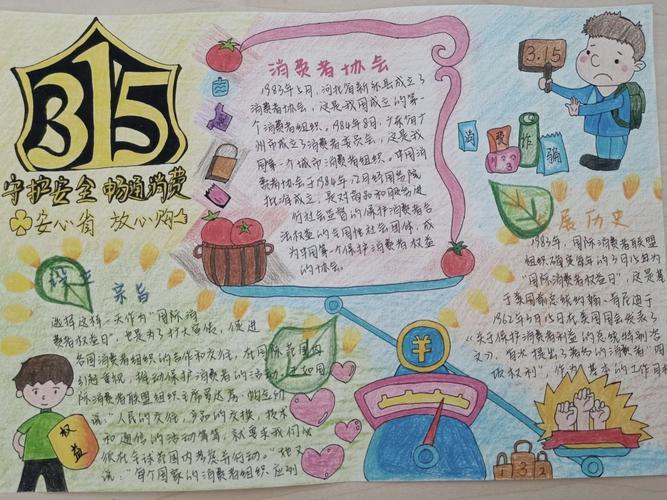 315
守护安全 畅通消费
安心省 放心购
消费者协会
1983年5月,河北省新乐县成立了
消费者协会,这是我国成立的第一
个消费者组织。1984年8月,广东省广
州市成立了消费者委员会,这是我
国第一个城市消费者组织。中国消
费者协会于1984年12月经国务院
批准成立,是对商品和服务进
行社会监督的保护消费者合
法权益的全国性社会团体,成
为中国第一个保护消费者权益
的协会。
3.15
消 费 诈 骗
展历史
1983年,国际消费者联盟
组织确定每年的3月15日为
"国际消费者权益日",这是基
于美国前总统约翰·肯尼迪于
1962年3月15日在美国国会发表了
《关于保护消费者利益的总统特别咨
文》,首次提出了著名的消费者"四
项权利",作为基本的工作目
宗旨
选择这样一天作为"国际消
费者权益日",也是为了扩大宣传,促进
各国消费者组织的合作和交往,在国际范围内
引起重视,推动保护消费者的活动。
际消费者联盟组织主席
说:"人民的交往,产品的交换,技术
和通信的活动等等,就要求我们必
须在全球范围内考虑并行动。"他又
说:"每个国家的消费者组织应到
权益
¥
1 3 2